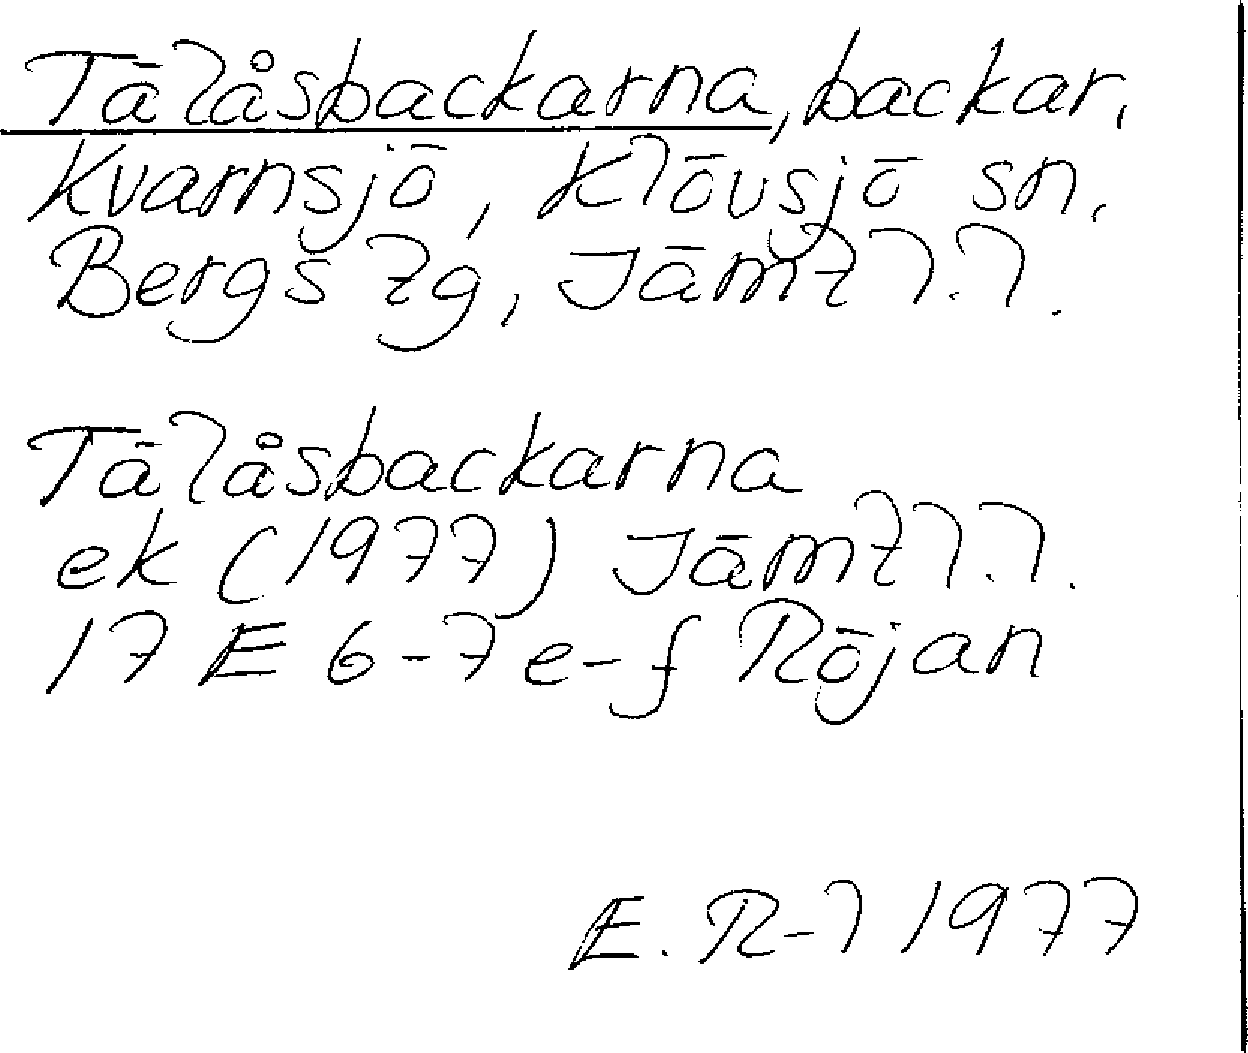 Tälåsbackarna, backar,
Kvarnsjö, Klövsjö sn,
Bergs tg, Jämtl.l.
Tälåsbackarna
ek (1977) Jämtl.l.
17 E 6-7 e-f Röjan
E. R-l 1977